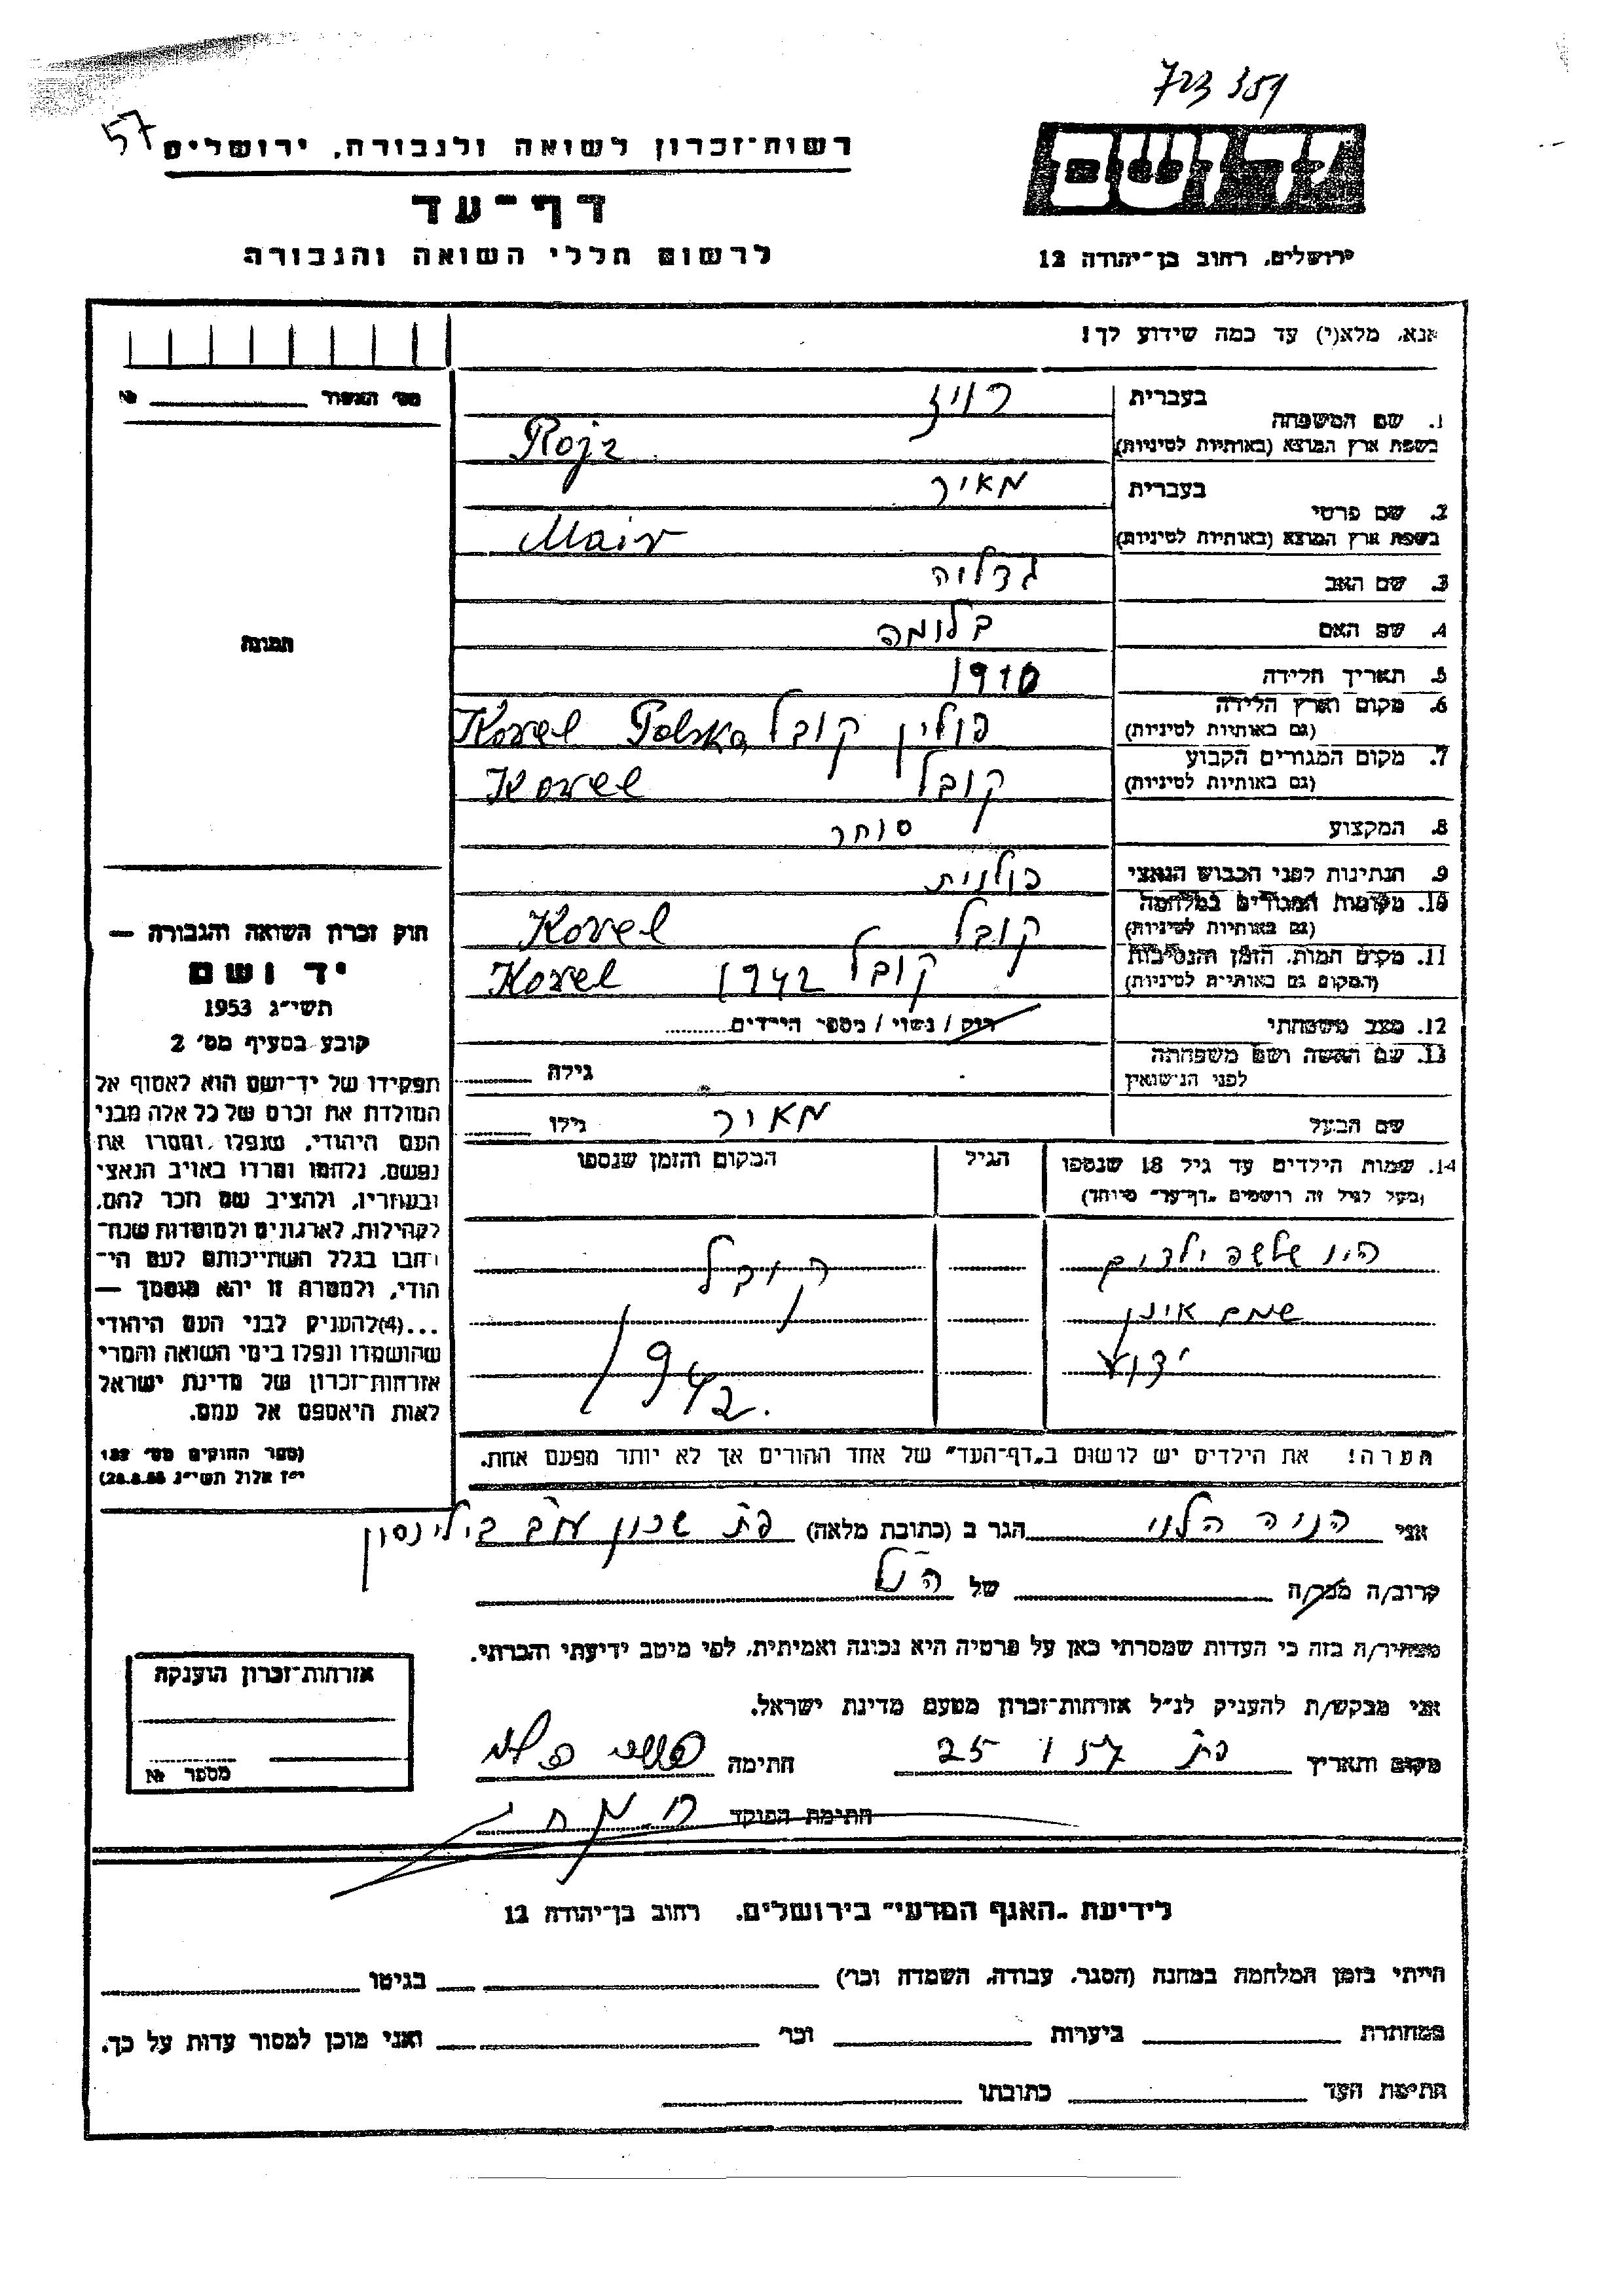 723 351
57
רשות־זכרון לשואה ולגבורה, ירושלים
דף־עד
לרשום חללי השואה והגבורה
ירושלים, רחוב בן־יהודה 12
אנא, מלא(י) עד כמה שידוע לך!
מס' האשור №
1. שם המשפחה
בעברית רויז
בשפת ארץ המוצא (באותיות לטיניות) Rojz
2. שם פרטי
בעברית מאיר
בשפת ארץ המוצא (באותיות לטיניות) Mair
3. שם האב גדליה
4. שם האם בלומה
5. תאריך הלידה 1910
6. מקום וארץ הלידה (גם באותיות לטיניות) פולין קובל Kovel Polska
7. מקום המגורים הקבוע (גם באותיות לטיניות) קובל Kovel
8. המקצוע סוחר
9. הנתינות לפני הכבוש הנאצי פולנית
10. מקומות המגורים במלחמה (גם באותיות לטיניות) קובל Kovel
11. מקום המות, הזמן והנסיבות (המקום גם באותיות לטיניות) קובל 1942 Kovel
12. מצב משפחתי רווק / נשוי / מספר הילדים
13. שם האשה ושם משפחתה לפני הנישואין גילה
שם הבעל מאיר גילו
14. שמות הילדים עד גיל 18 שנספו הגיל המקום והזמן שנספו
(מעל לגיל זה רושמים "דף־עד" מיוחד)
היו שלשה ילדים קובל
שמם אינן
ידוע 1942.
הערה! את הילדים יש לרשום ב"דף־העד" של אחד ההורים אך לא יותר מפעם אחת.
תמונה
חוק זכרון השואה והגבורה —
יד ושם
תשי״ג 1953
קובע בסעיף מס' 2
תפקידו של יד־ושם הוא לאסוף אל
המולדת את זכרם של כל אלה מבני
העם היהודי, שנפלו, ומסרו את
נפשם, נלחמו ומרדו באויב הנאצי
ובעוזריו, ולהציב שם וזכר להם,
לקהילות, לארגונים ולמוסדות שנח־
רבו בגלל השתייכותם לעם הי־
הודי, ולמטרה זו יהא מוסמך —
...(4)להעניק לבני העם היהודי
שהושמדו ונפלו בימי השואה והמרי
אזרחות־זכרון של מדינת ישראל
לאות היאספם אל עמם.
(ספר החוקים מס' 132
י״ז אלול תשי״ג 28.8.53)
אני הניה הלוי הגר ב (כתובת מלאה) פת שכון עוב בילינסון
קרוב/ה מכר/ה של הנ״ל
מצהיר/ה בזה כי העדות שמסרתי כאן על פרטיה היא נכונה ואמיתית, לפי מיטב ידיעתי והכרתי.
אני מבקש/ת להעניק לנ״ל אזרחות־זכרון מטעם מדינת ישראל.
מקום ותאריך פת חתימה
חתימת הפוקד
אזרחות־זכרון הוענקה
מספר №
לידיעת "האגף המדעי" בירושלים, רחוב בן־יהודה 12
הייתי בזמן המלחמה במחנה (הסגר, עבודה, השמדה וכו') בגיטו
במחתרת ביערות וכו' ואני מוכן למסור עדות על כך.
חתימת העד כתובתו